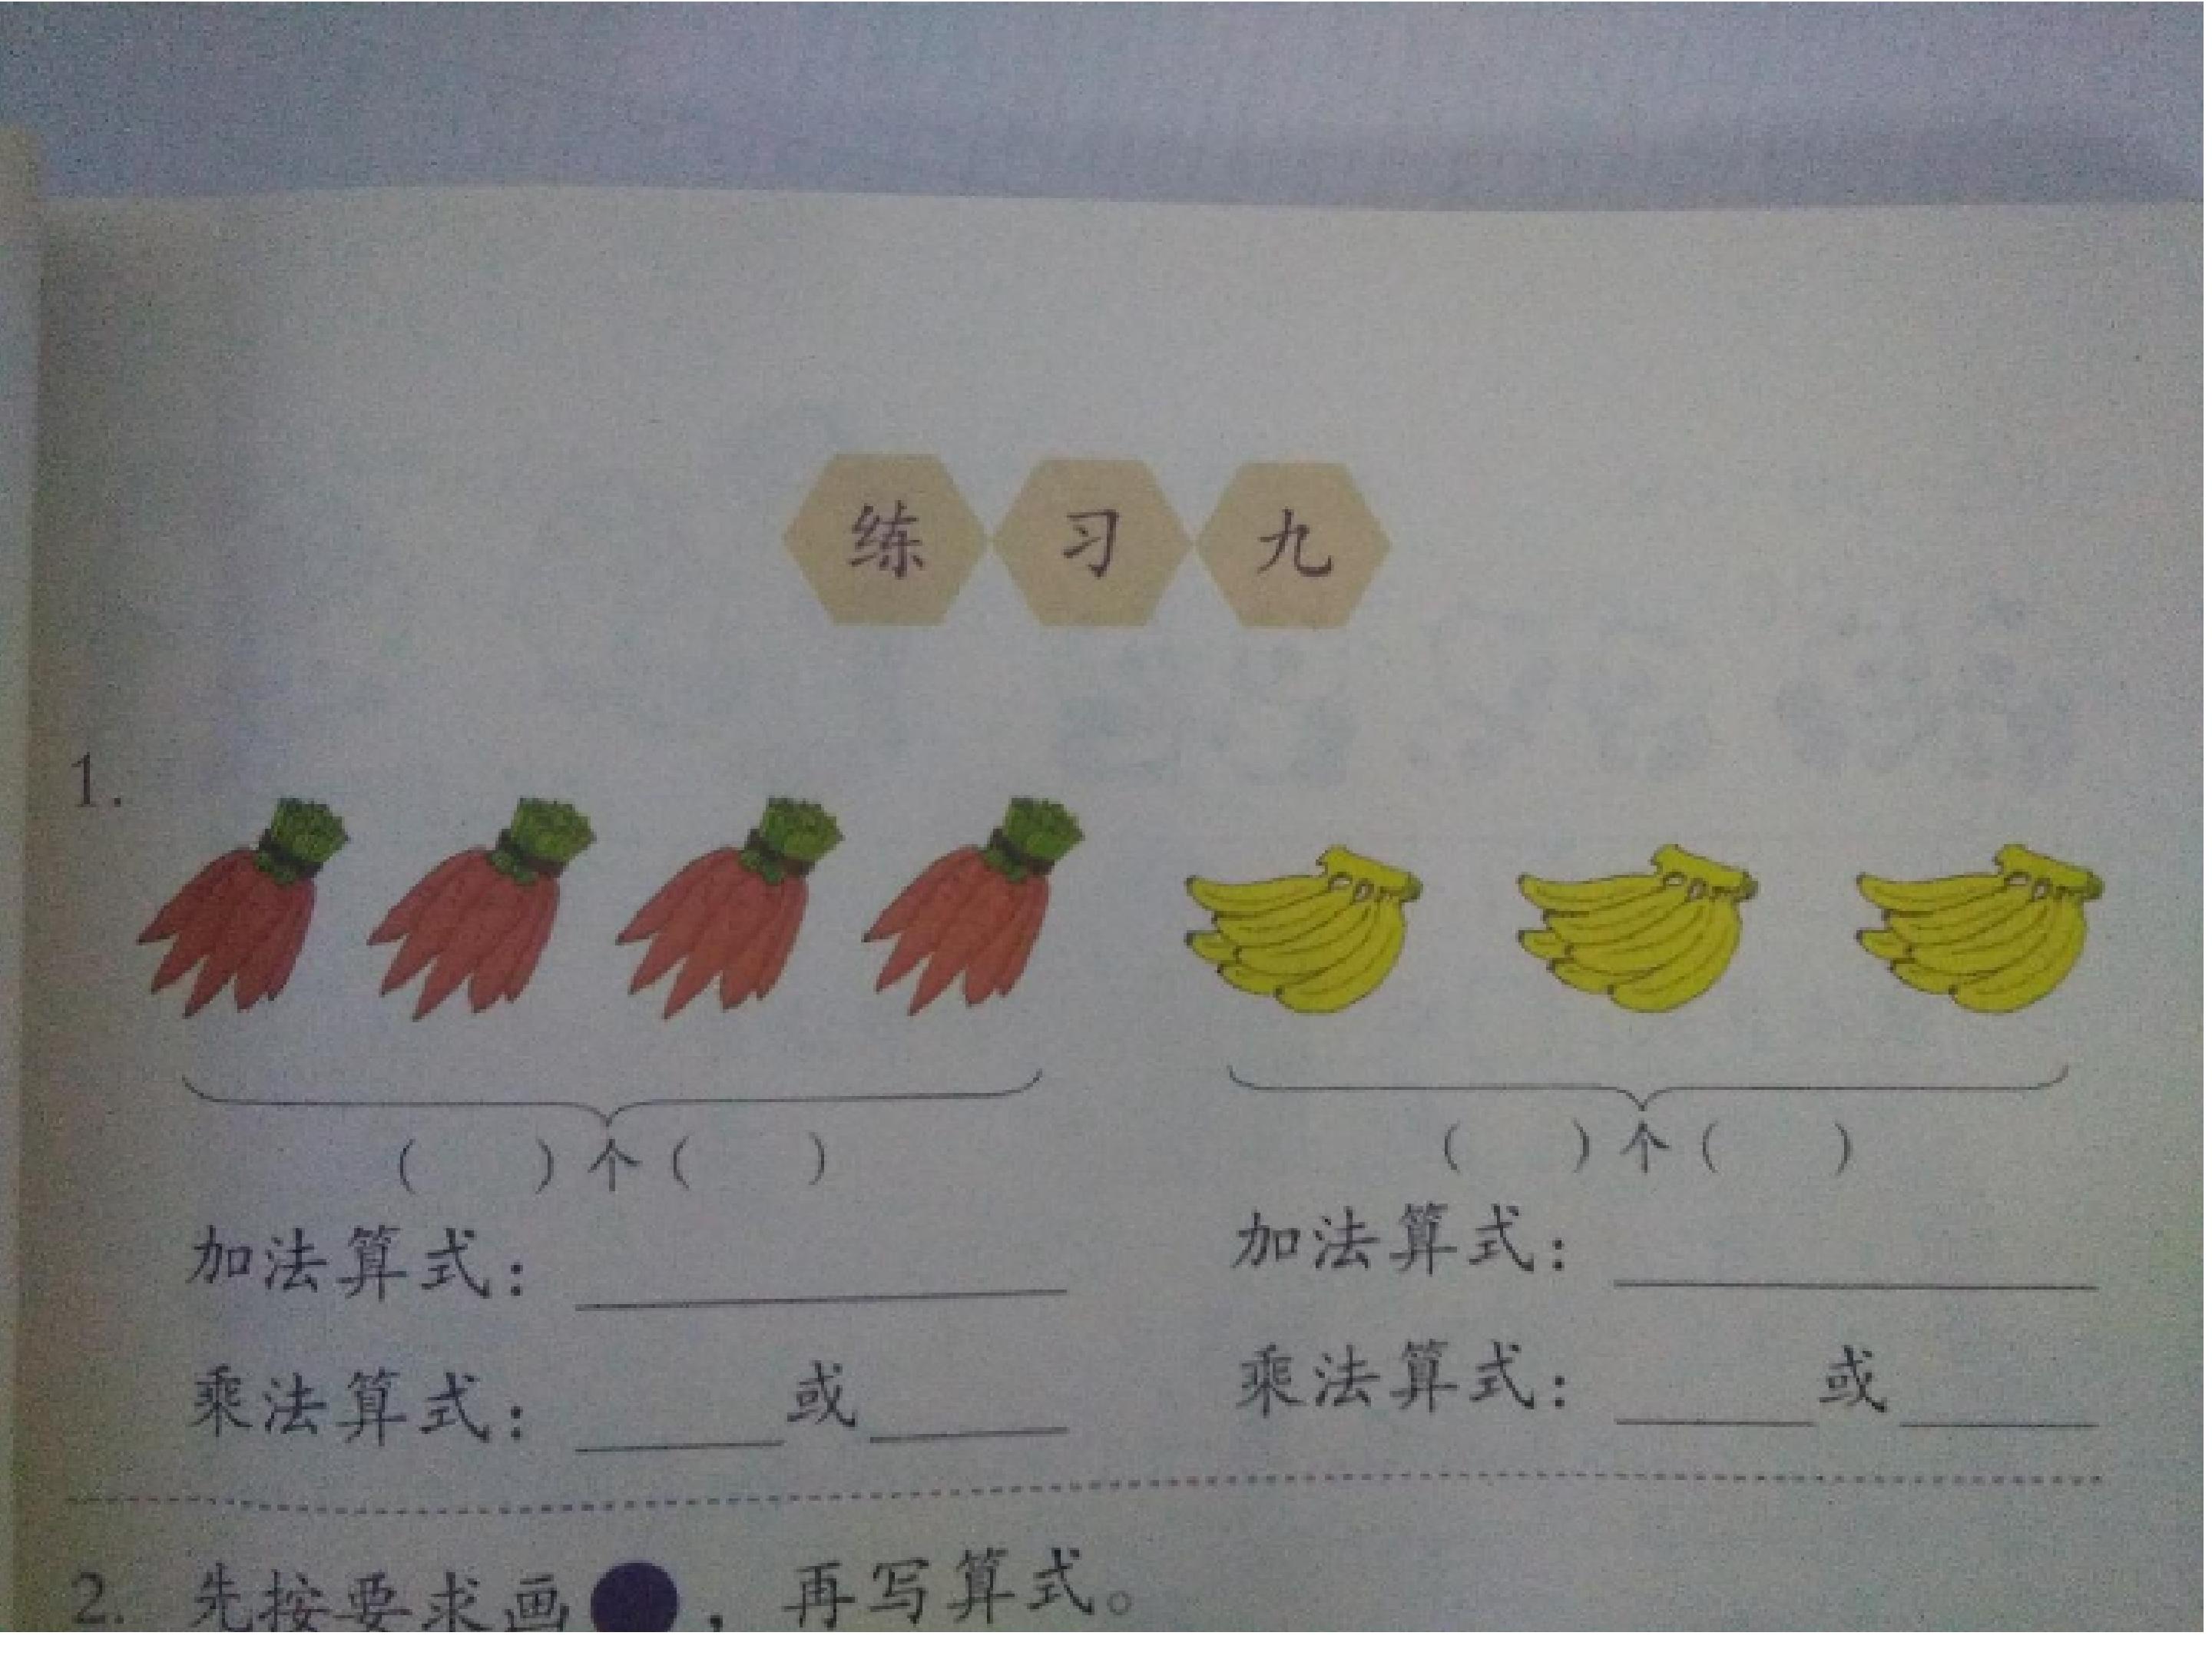 练习九
1.
( )个( ) ( )个( )
加法算式:______ 加法算式:______
乘法算式:____或____ 乘法算式:____或____
2. 先按要求画●，再写算式。